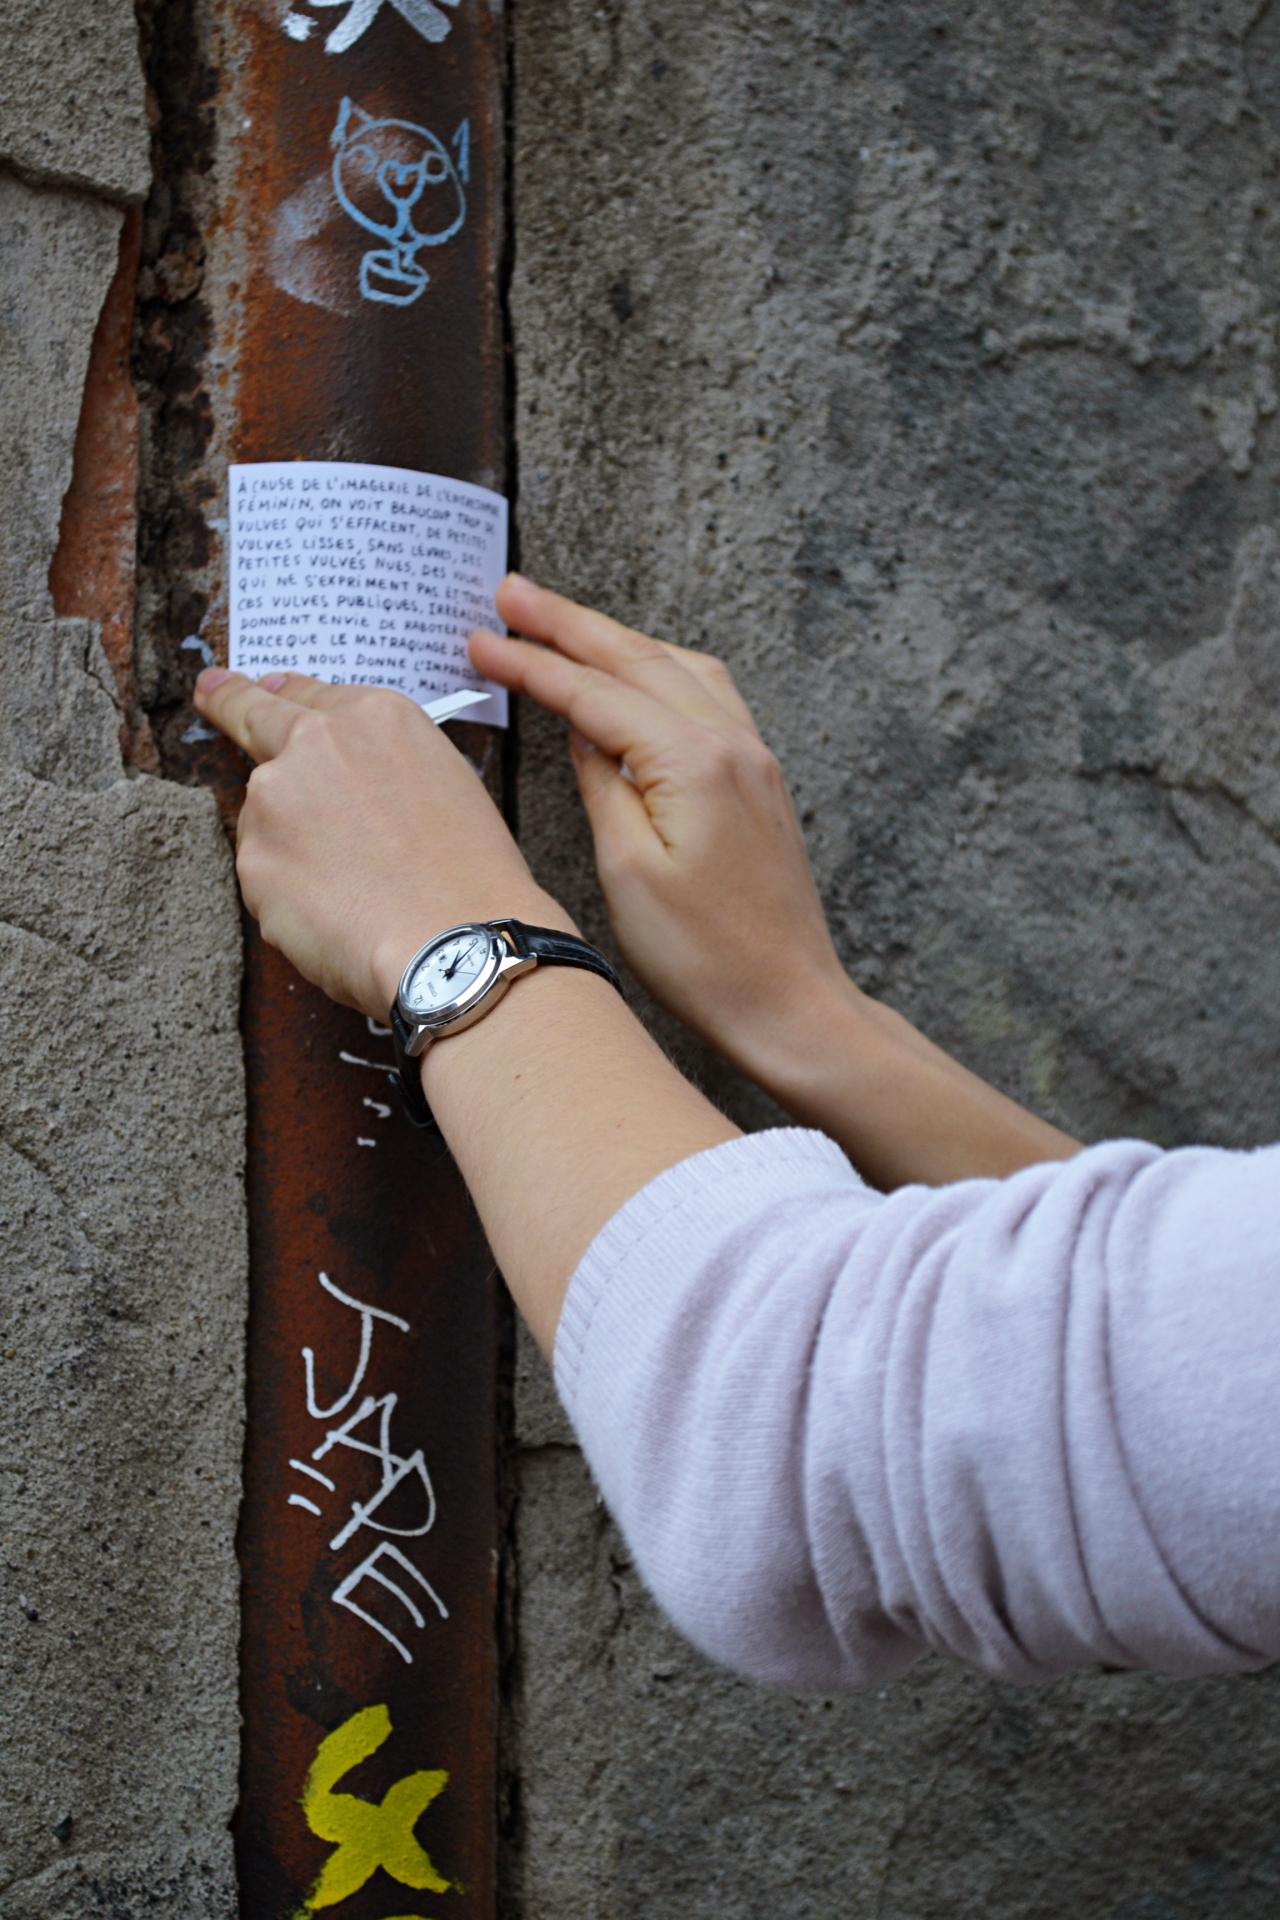 À CAUSE DE L'IMAGERIE DE L'ENTREJAMBE
FÉMININ, ON VOIT BEAUCOUP TROP DE
VULVES QUI S'EFFACENT, DE PETITES
VULVES LISSES, SANS LÈVRES, DES
PETITES VULVES NUES, DES VULVES
QUI NE S'EXPRIMENT PAS. ET TOUTES
CES VULVES PUBLIQUES, IRRÉALISTES
DONNENT ENVIE DE RABOTER
PARCEQUE LE MATRAQUAGE DE
IMAGES NOUS DONNE L'IMPRESSION
DIFFORME, MAIS
JAPE